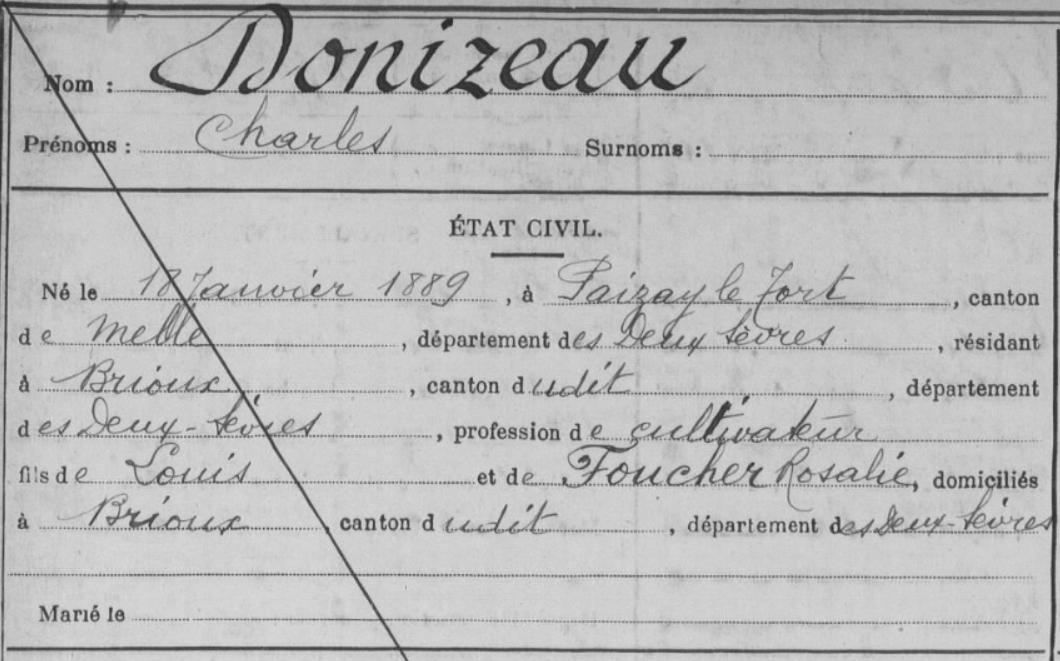 Nom : Donizeau
Prénoms : Charles Surnoms :
ÉTAT CIVIL.
Né le 18 Janvier 1889, à Paizay le Tort, canton
de Melle, département des Deux Sèvres, résidant
à Brioux, canton dudit, département
des Deux-Sèvres, profession de cultivateur
fils de Louis et de Foucher Rosalie, domiciliés
à Brioux, canton dudit, département des Deux-Sèvres
Marié le